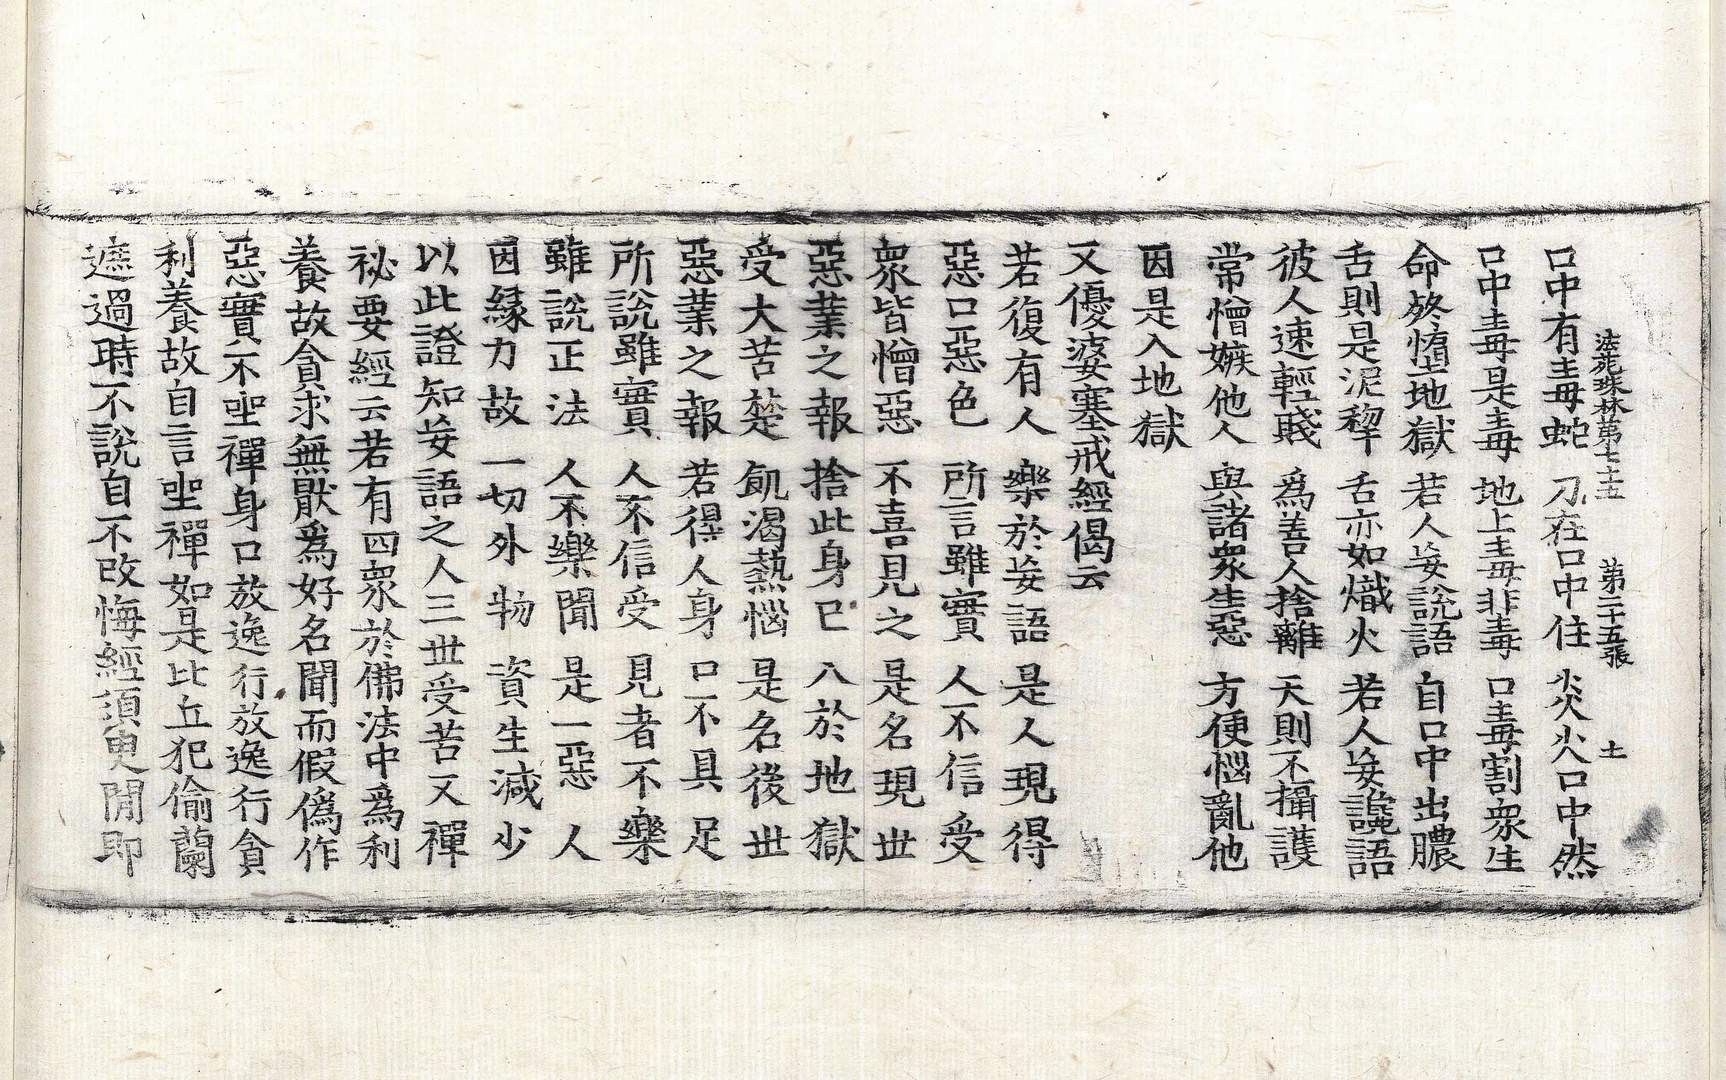 法苑珠林第七十五 第二十五張 土
口中有毒蛇 刀在口中住 炎火口中然
口中毒是毒 地上毒非毒 口毒割衆生
命終墮地獄 若人妄說語 自口中出膿
舌則是泥犂 舌亦如熾火 若人妄讒語
彼人速輕賤 爲善人捨離 天則不攝護
常憎嫉他人 與諸衆生惡 方便惱亂他
因是入地獄
又優婆塞戒經偈云
若復有人 樂於妄語 是人現得
惡口惡色 所言雖實 人不信受
衆皆憎惡 不喜見之 是名現世
惡業之報 捨此身已 入於地獄
受大苦楚 飢渴熱惱 是名後世
惡業之報 若得人身 口不具足
所說雖實 人不信受 見者不樂
雖說正法 人不樂聞 是一惡人
因緣力故 一切外物 資生減少
以此證知妄語之人三世受苦又禪
祕要經云若有四衆於佛法中爲利
養故貪求無猒爲好名聞而假僞作
惡實不坐禪身口放逸行放逸行貪
利養故自言坐禪如是比丘犯偷蘭
遮過時不說自不改悔經須臾閒即